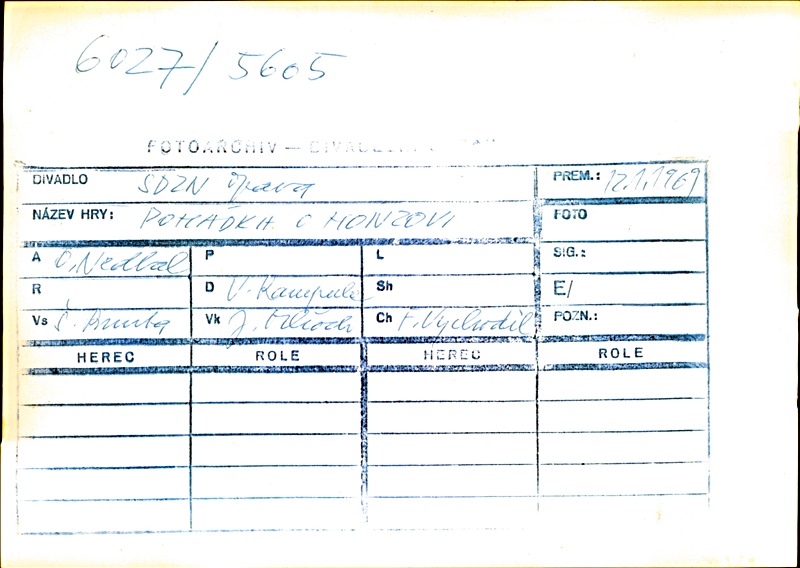 6027/5605
FOTOARCHIV —
DIVADLO SDZN Opava PREM.: 12.1.1969
NÁZEV HRY: POHÁDKA O HONZOVI FOTO
A O. Nedbal P L SIG.:
R D V. Sh E/
Vs Vk J. Ch F. Vychodil POZN.:
HEREC ROLE HEREC ROLE